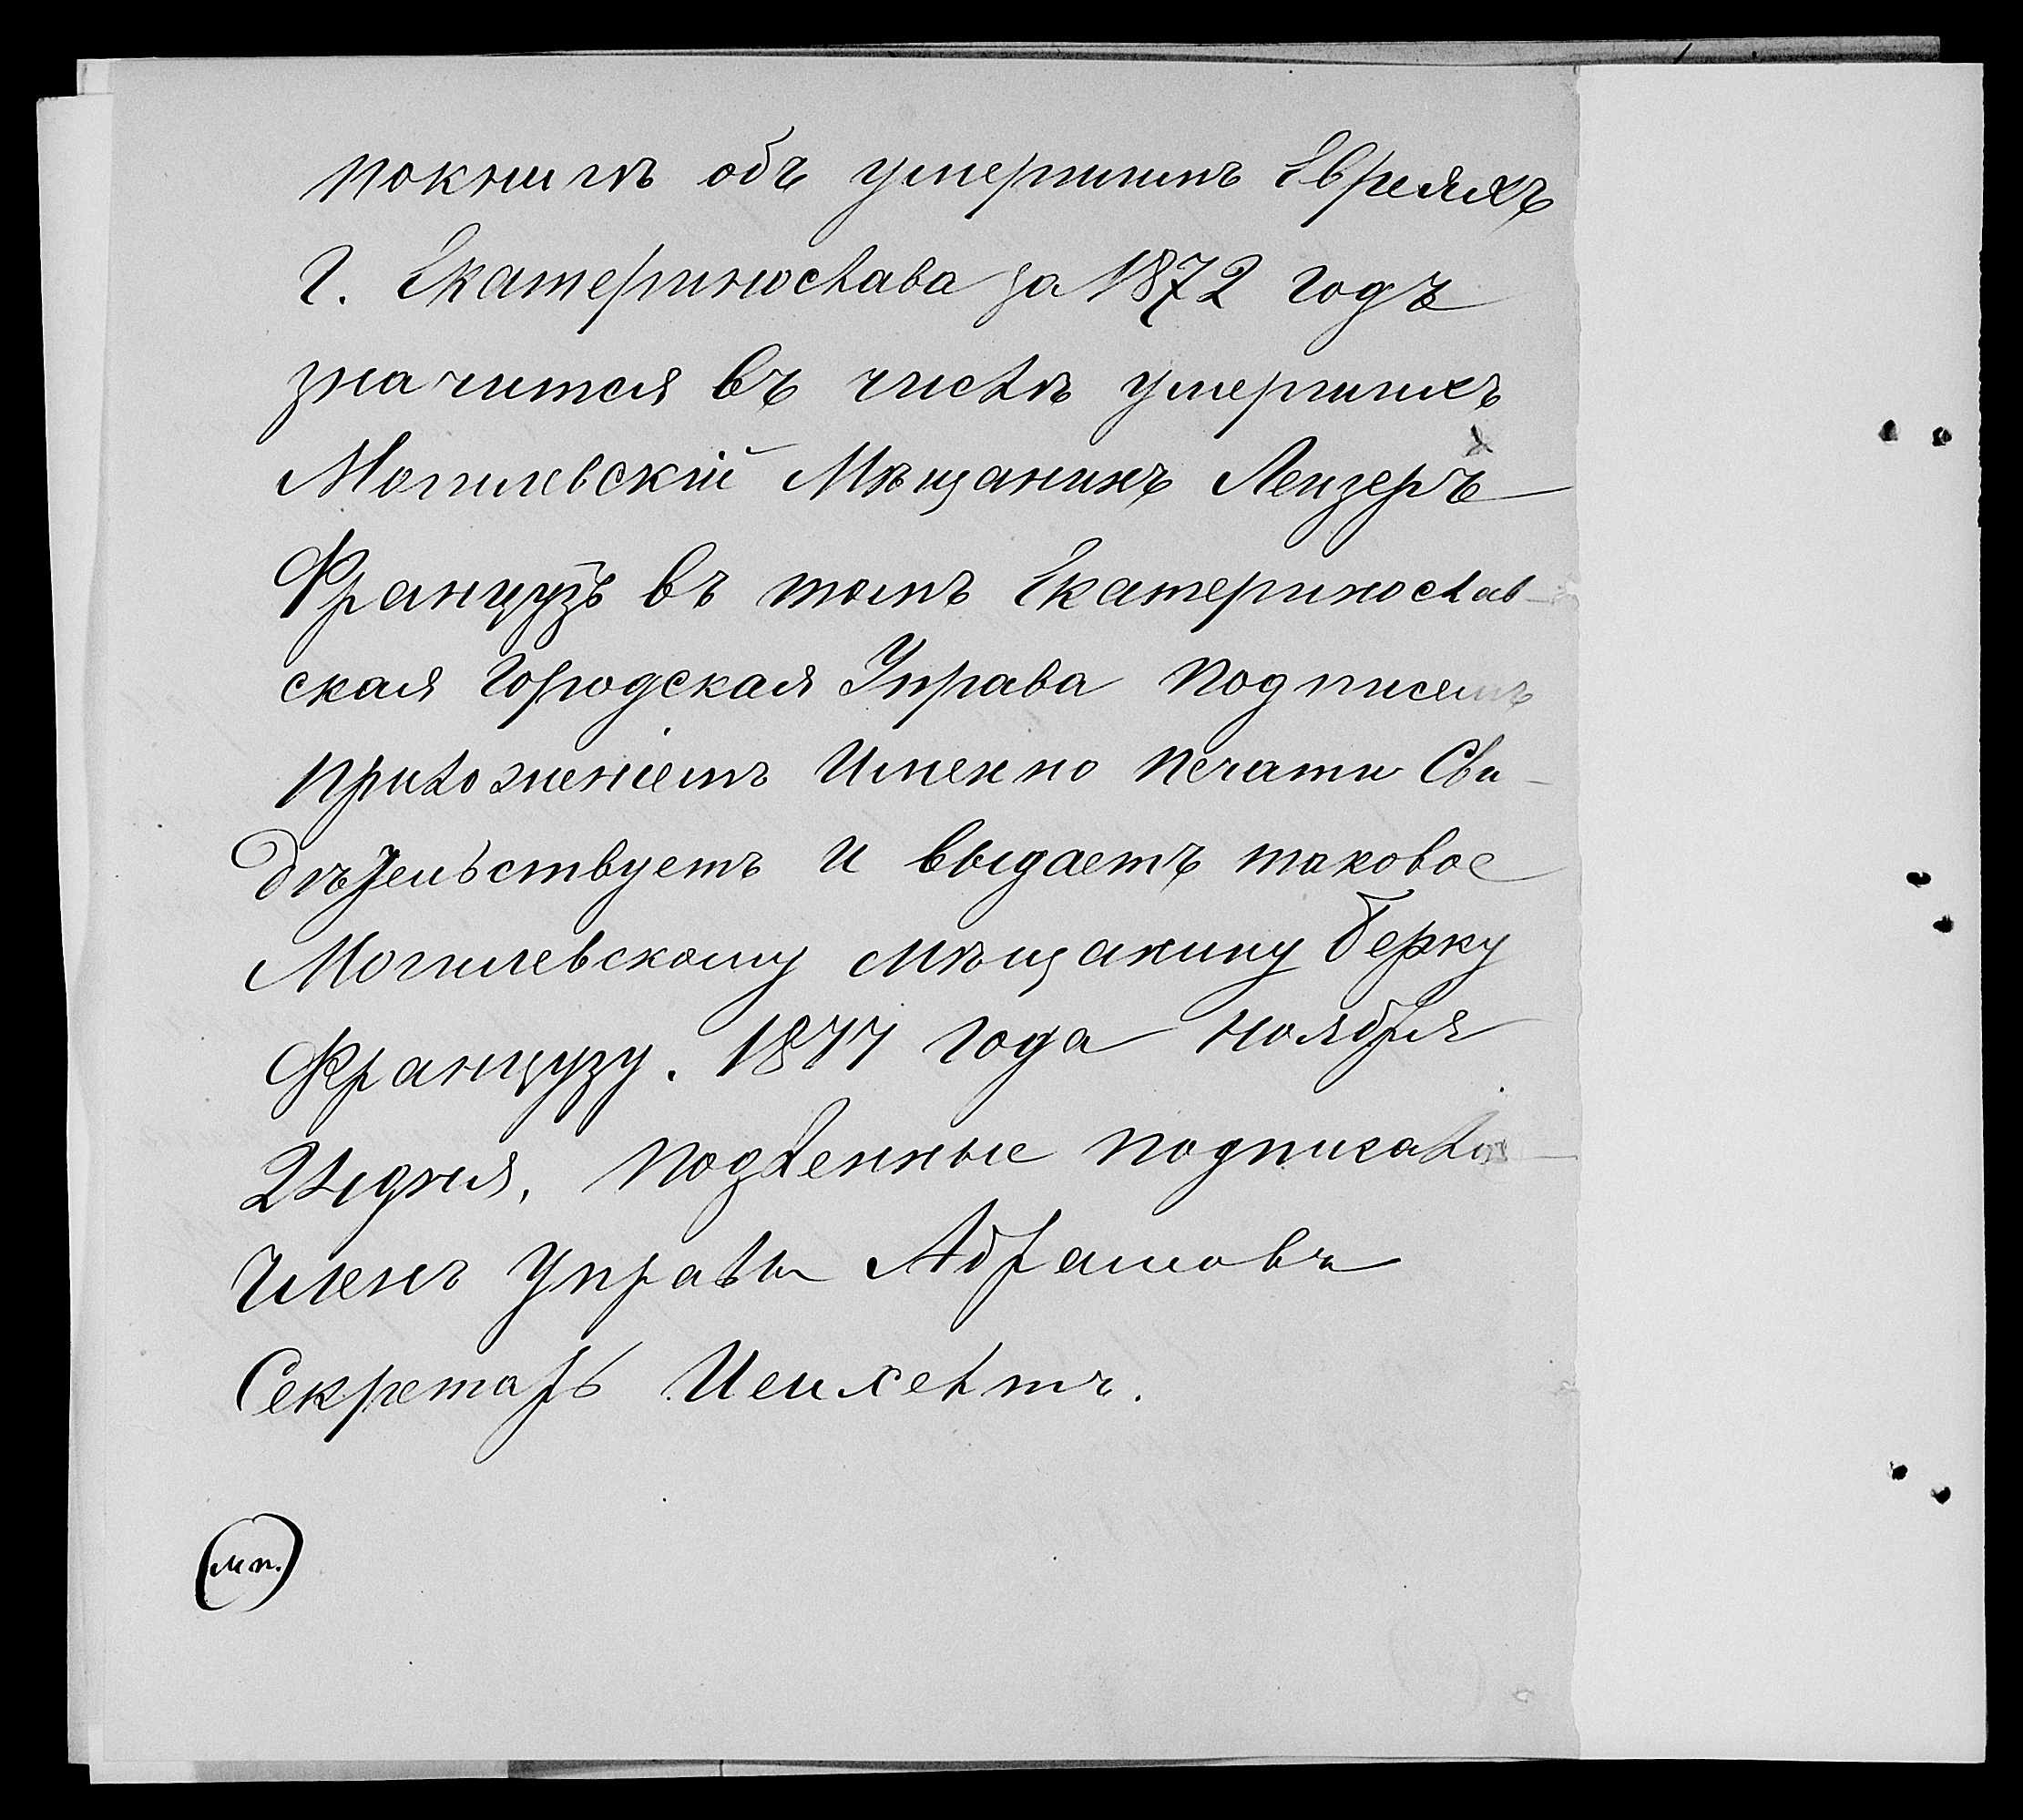 покнигѣ объ умершимъ Евреяхъ
г. Екатеринослава за 1872 годъ
значится въ числѣ умершихъ
Могилевскій Мѣщанинъ Лейзеръ
Французъ въ томъ Екатеринослав-
ская Городская Управа подписемъ
приложеніемъ Именно печати Сви-
дѣтельствуетъ и выдаетъ таковое
Могилевскому мѣщанину Берку
Французу. 1877 года ноября
24 дня, подленные подписали
Членъ Управы Абрамовъ
Секретарь
(М п.)